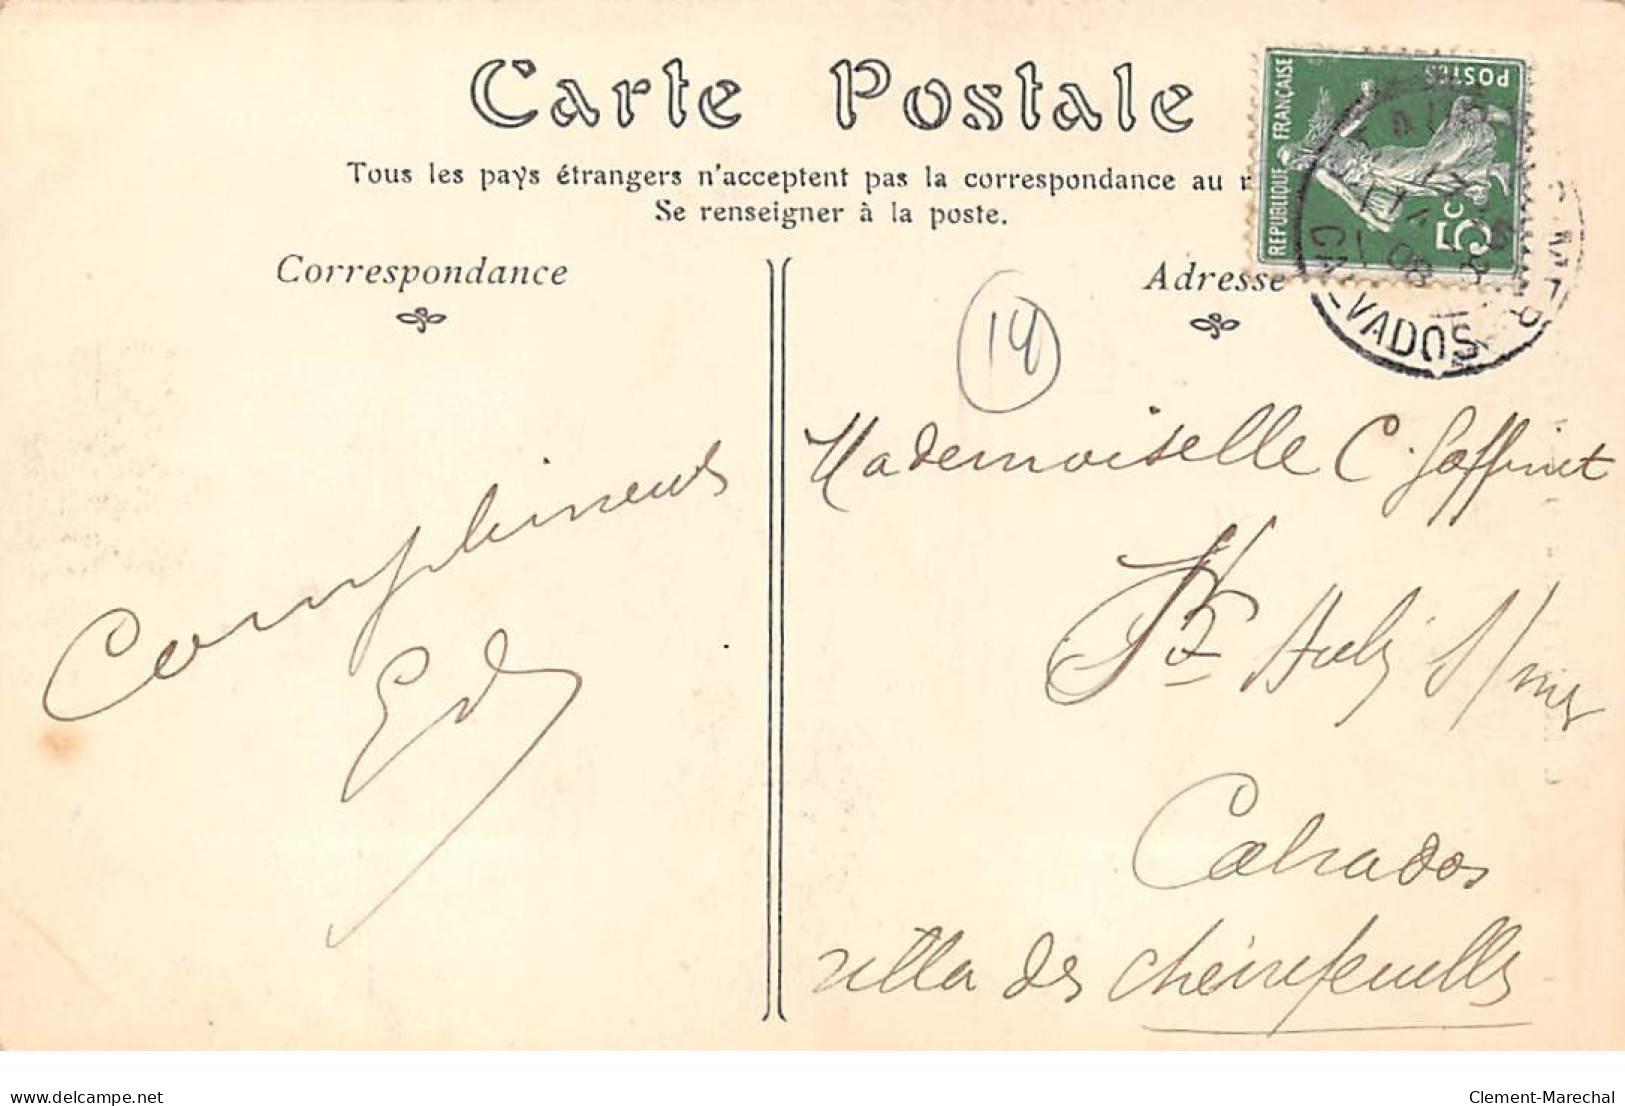 Carte Postale
Tous les pays étrangers n'acceptent pas la correspondance au
Se renseigner à la poste.
REPUBLIQUE FRANÇAISE
POSTES
5c
CALVADOS
08
Correspondance
Adresse
14
Compliments
Ed
Mademoiselle C. Goffinet
St Aubin s/mer
Calvados
villa des Chèvrefeuilles
delcampe.net
Clement-Marechal